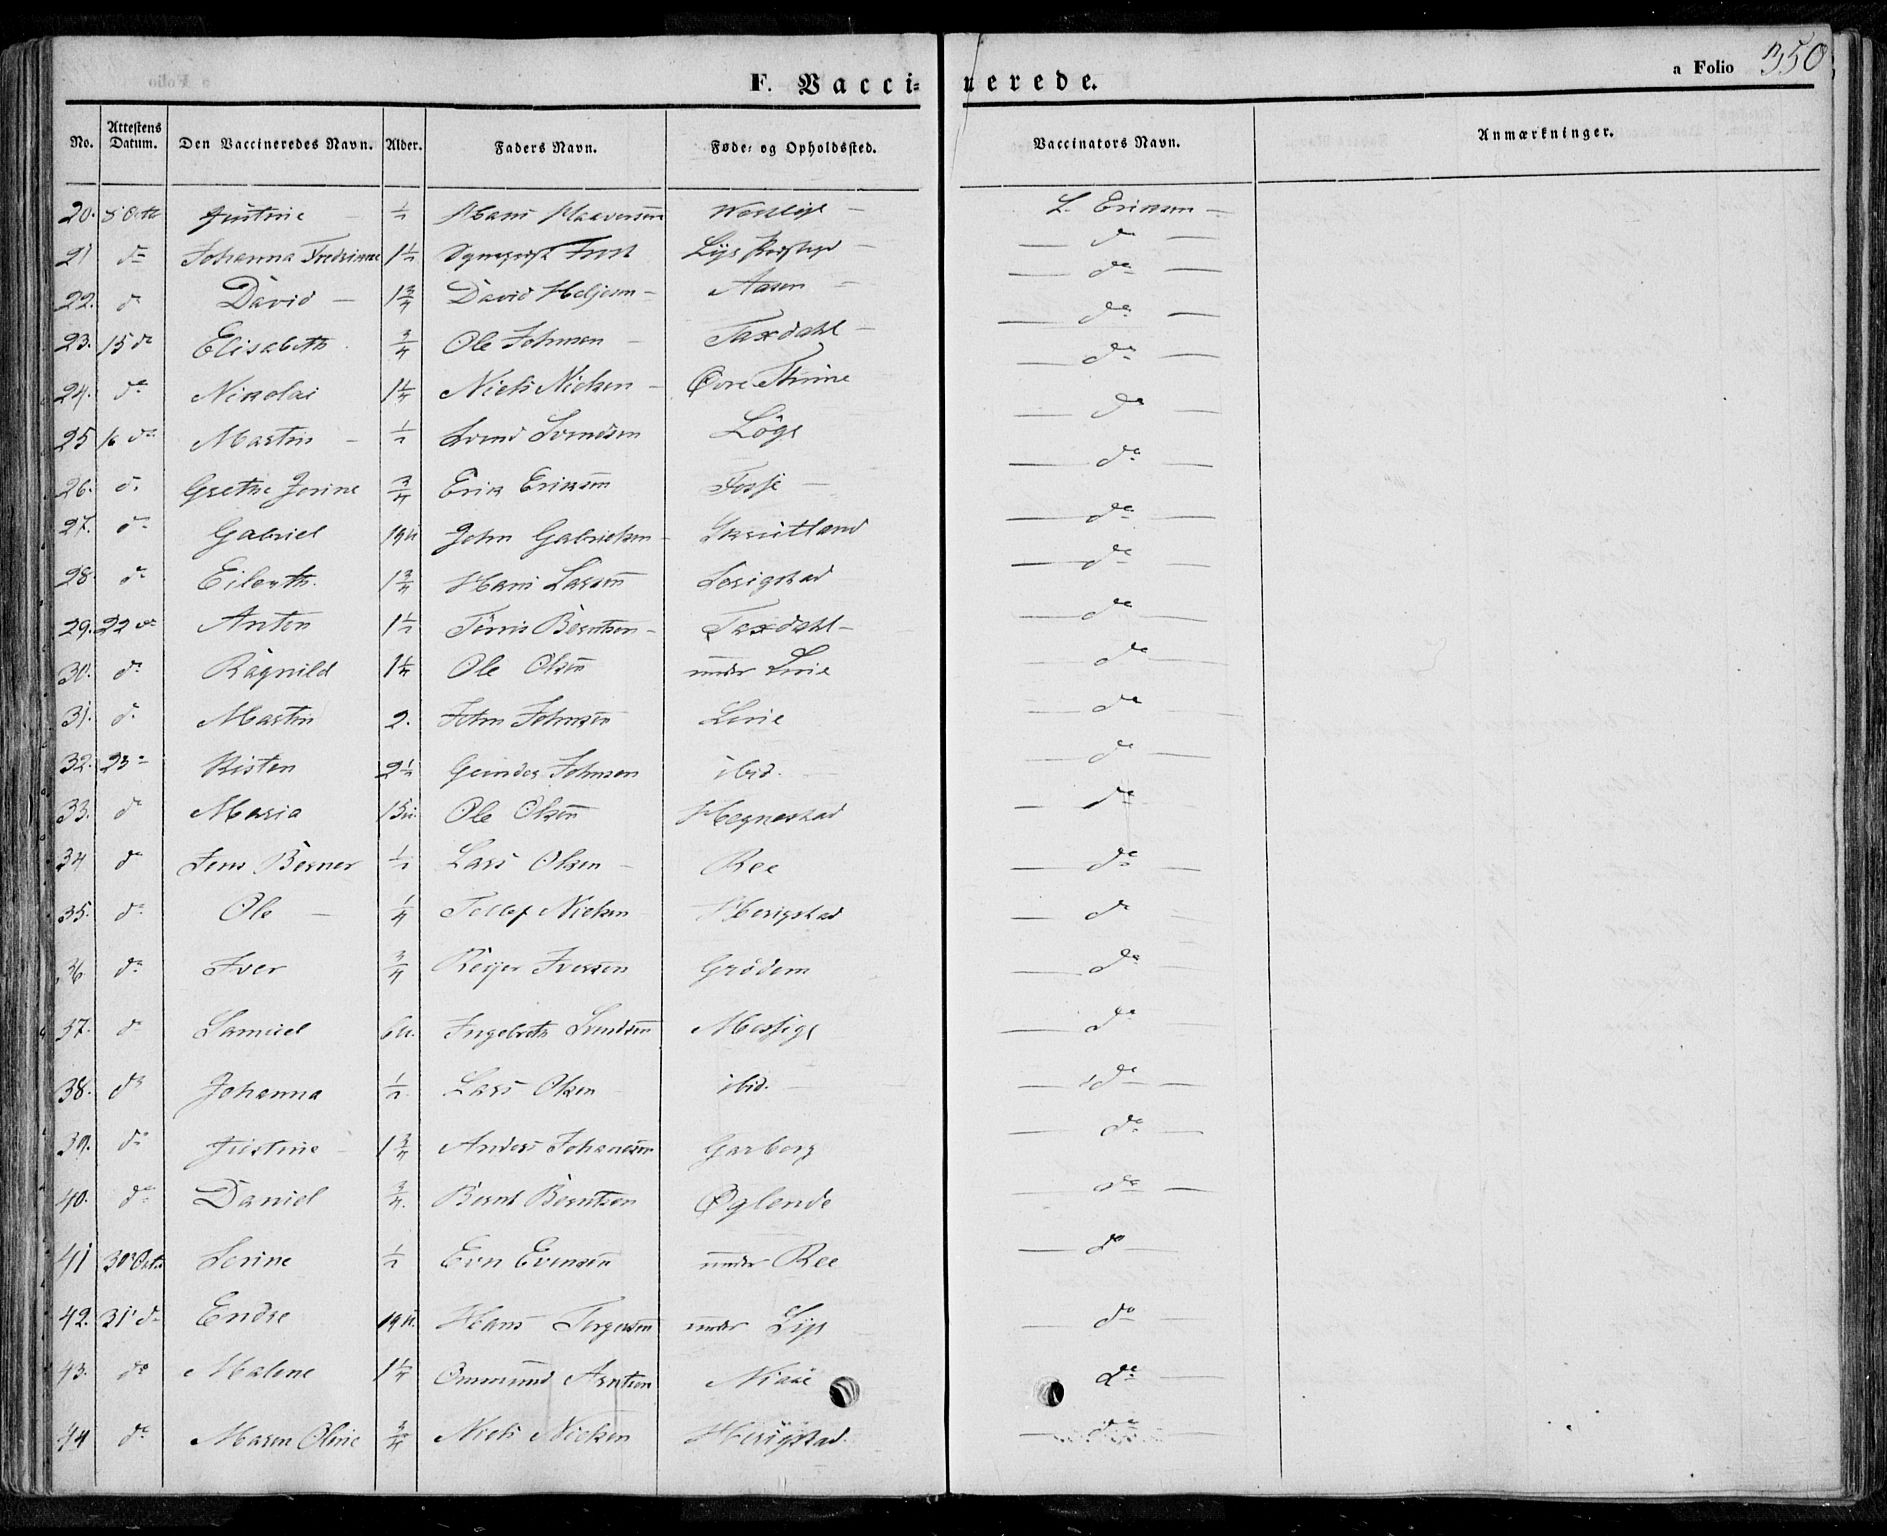 a Folio 350
F. Vaccinerede.
No. Attestens Datum. Den Vaccineredes Navn. Alder. Faders Navn. Føde- og Opholdssted. Vaccinators Navn. Anmærkninger.
20. 8 Octb Justine — ½ Hans L. Eriksen —
21 do Johanna Fredrikke 1½ — do —
22. do David — 1¾ David Heljesen — Aasen — — do —
23. 15 do Elisabeth ¾ Ole Johnsen — Taxdahl — — do —
24. do Nikolai 1¼ Niels Nielsen — Øvre Thime — do —
25 16 do Martin — ½ Svend Svendsen Löge — do —
26. do Grethe Jorine ¾ Erik Eriksen Fosse — — do —
27. do Gabriel 19u John Gabrielsen — Skrudland — do —
28 do Eilerth. 1¾ Hans Larsen — do —
29. 22 do Anton 1½ Törris Berntsen — Taxdahl — — do —
30. do Ragnild 1¼ Ole Olsen under Lyse — do —
31. do Martin 2. John Johnsen — do —
32. 23 do Kisten 2½ Gunder Johnsen ibid. — do —
33. do Maria 15u. Ole Olsen Hegnestad — do
34 do Jens Berner ½ Lars Olsen — Ree — do —
35. do Ole — ¼ Tollef Nielsen Herigstad — do —
36 do Iver ¾ Reijer Iversen Grødem — do —
37. do Samuel 6u. Ingebreth Mossige — do —
38. do Johanna ½ Lars Olsen ibid. — — do —
39. do Justine — 1¾ Anders Johanesen Garborg — do —
40. do Daniel ¾. Bernt Berntsen Øglende — do —
41 30 Octb Serine ½ Even Evensen under Ree — do —
42. 31 do Endre 19u. Hans Torgersen under Lye — do —
43. do Malene 1¼ Ommund Arntsen — do —
44 do Maren Oline ¾ Niels Nielsen Herigstad. — do